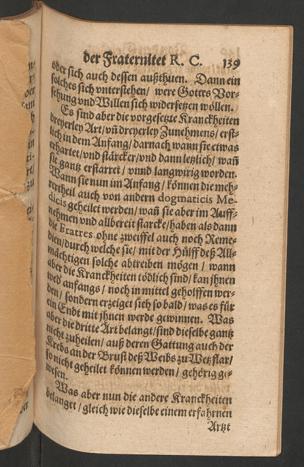 der Fraternitet R. C. 139
oder sich auch dessen außthuen. Dann ein
solches sich vnterstehen / were Gottes Vor-
sehung vnd Willen sich widersetzen wöllen.
Es sind aber die vorgesetzte Kranckheiten
dreyerley Art / vñ dreyerley Zunemens / erst-
lich in dem Anfang / darnach wann sie etwas
erhartet / vnd stärcker / vnd dann letzlich / wañ
sie gantz erstarret / vnnd langwirig worden.
Wann sie nun im Anfang / können die meh-
rertheil auch von andern dogmaticis Me-
dicis geheilet werden / wañ sie aber im Auff-
nehmen vnd allbereit starcke / haben als dann
die Fratres ohne zweiffel auch noch Reme-
dien / durch welche sie / mit der Hülff deß All-
mächtigen solche abtreiben mögen / wann
aber die Kranckheiten tödlich sind / kan jhnen
weder anfangs / noch in mittel geholffen wer-
den / sondern erzeiget sich so bald / was es für
ein Endt mit jhnen werde gewinnen. Was
aber die dritte Art belangt / sind dieselbe gantz
nicht zuheilen / auß deren Gattung auch der
Krebs an der Brust deß Weibs zu Wetzflar /
so nicht geheilet können werden / gehörig ge-
wesen.
Was aber nun die andere Kranckheiten
belanget / gleich wie dieselbe einem erfahrnen
Artzt